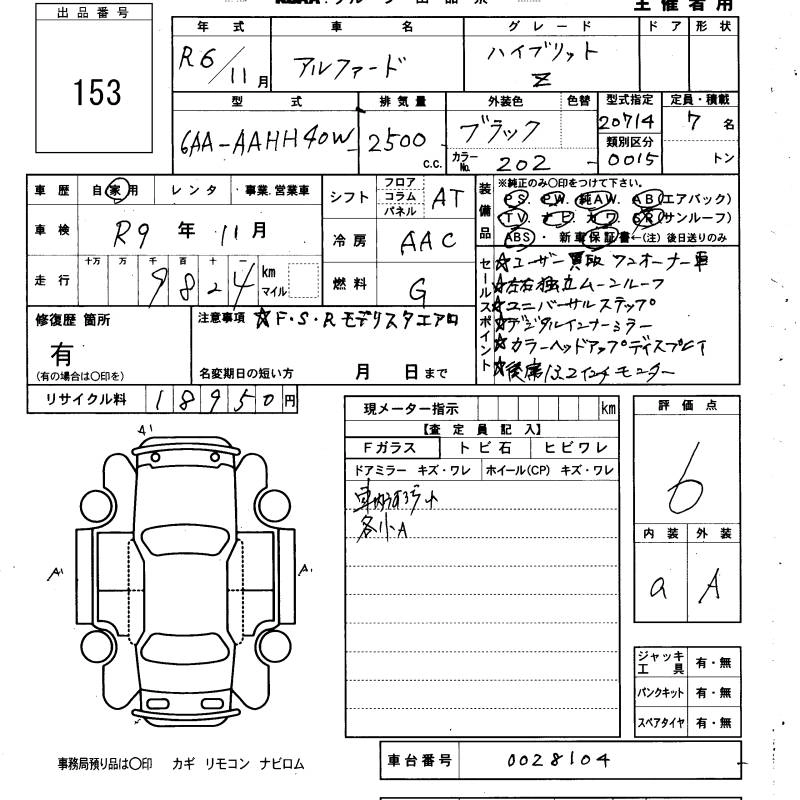 出品番号
153
主催者用
年式 車名 グレード ドア 形状
R6/11月 アルファード ハイブリット Z
型式 排気量 外装色 色替 型式指定 定員・積載
6AA-AAHH40W 2500 c.c. ブラック 20714 7名
カラーNo. 202 類別区分 0015 トン
車歴 自家用 レンタ 事業、営業車
車検 R9年 11月
走行 十万 万 千 百 十 一
9824 km マイル
シフト フロア コラム パネル AT
冷房 AAC
燃料 G
装備品 ※純正のみ〇印をつけて下さい。
PS. PW. 純AW. AB(エアバック)
TV. ナビ. カワ. SR(サンルーフ)
ABS・新車保証書←(注) 後日送りのみ
セールスポイント
☆ユーザー買取 ワンオーナー車
☆左右独立ムーンルーフ
☆ユニバーサルステップ
☆デジタルインナーミラー
☆カラーヘッドアップディスプレイ
☆後席13.2インチモニター
修復歴 箇所
有
(有の場合は〇印を)
注意事項 ☆F・S・Rモデリスタエアロ
名変期日の短い方 月 日まで
リサイクル料 18950円
現メーター指示 km
【査定員記入】
Fガラス トビ石 ヒビワレ
ドアミラー キズ・ワレ ホイール(CP) キズ・ワレ
各小A
評価点
6
内装 外装
a A
A1
A1
A1
ジャッキ工具 有・無
パンクキット 有・無
スペアタイヤ 有・無
事務局預り品は〇印 カギ リモコン ナビロム
車台番号 0028104